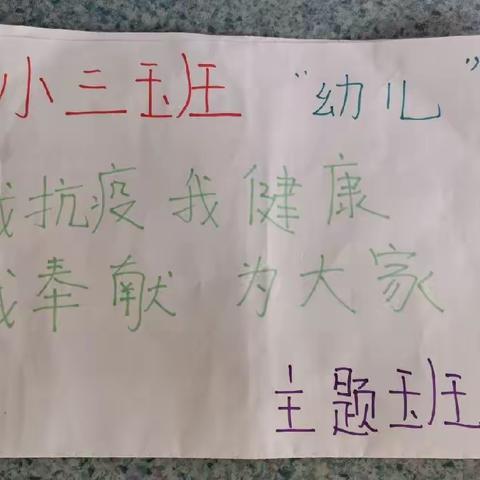 小三班 "幼儿"
我抗疫 我健康
我奉献 为大家
主题班